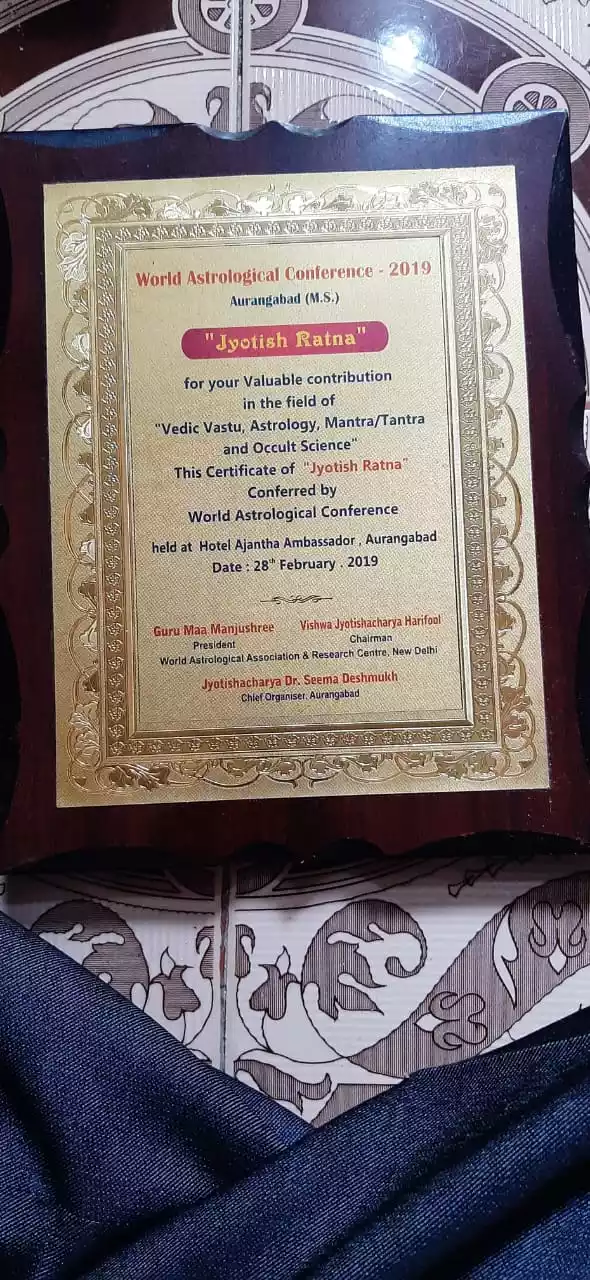 World Astrological Conference - 2019
Aurangabad (M.S.)
"Jyotish Ratna"
for your Valuable contribution
in the field of
"Vedic Vastu, Astrology, Mantra/Tantra
and Occult Science"
This Certificate of "Jyotish Ratna"
Conferred by
World Astrological Conference
held at Hotel Ajantha Ambassador , Aurangabad
Date : 28th February . 2019
Guru Maa Manjushree Vishwa Jyotishacharya Harifool
President Chairman
World Astrological Association & Research Centre, New Delhi
Jyotishacharya Dr. Seema Deshmukh
Chief Organiser, Aurangabad